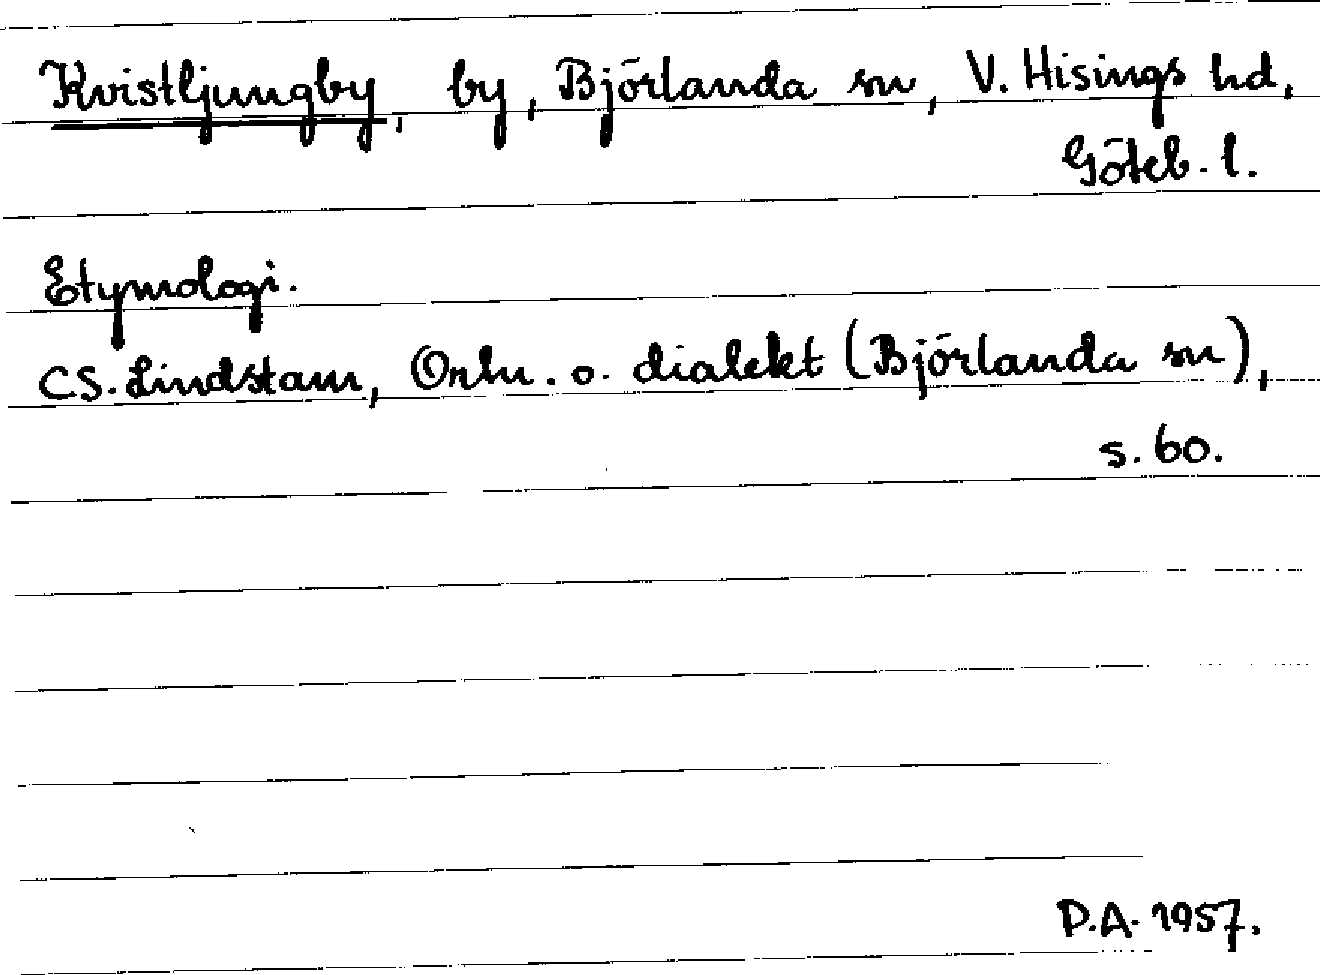 Kvistljungby, by, Björlanda sn, V. Hisings hd,
Göteb. l.
Etymologi.
CS. Lindstam, Ortn. o. dialekt (Björlanda sn),
s. 60.
P.A. 1957.